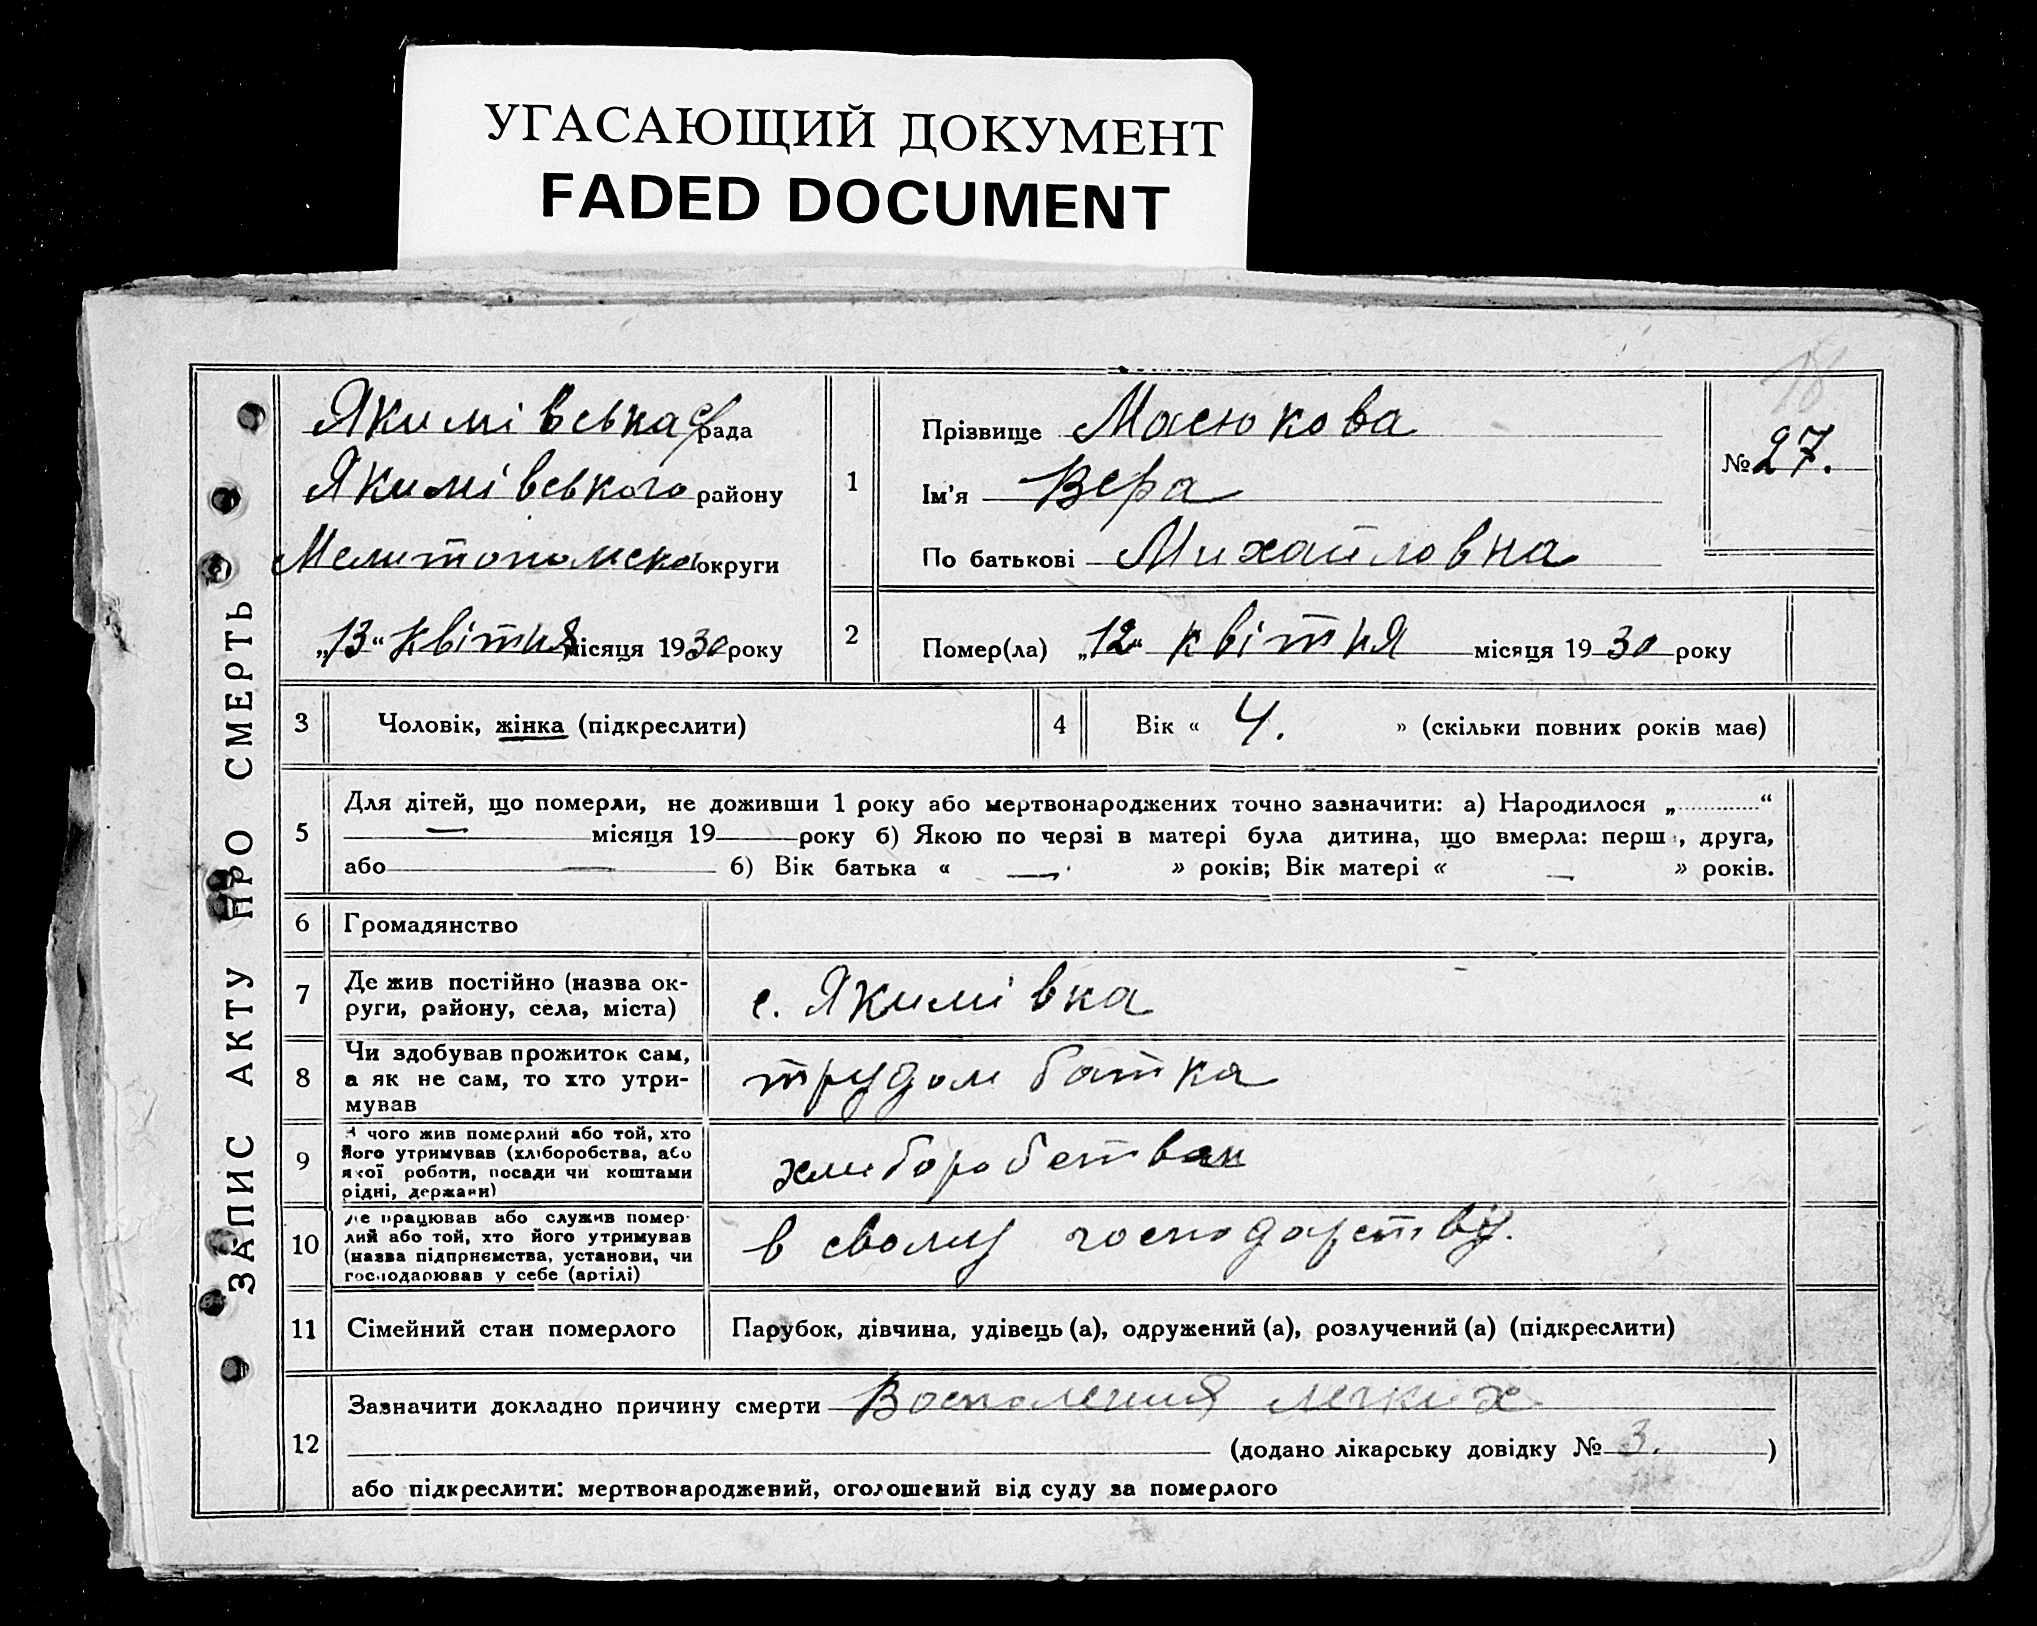 УГАСАЮЩИЙ ДОКУМЕНТ
FADED DOCUMENT
18
ЗАПИС АКТУ ПРО СМЕРТЬ
Якимівська с/рада
Якимівського району
Мелитопольска округи
„13“ квітня місяця 1930 року
1
Прізвище Масюкова
Ім'я Вера
По батькові Михайловна
№ 27.
2
Помер(ла) „12“ квітня місяця 1930 року
3 Чоловік, жінка (підкреслити)
4 Вік « 4. » (скільки повних років має)
5
Для дітей, що померли, не доживши 1 року або мертвонароджених точно зазначити: а) Народилося „ “
— місяця 19 року б) Якою по черзі в матері була дитина, що вмерла: перш , друга,
або — б) Вік батька « — » років; Вік матері « — » років.
6 Громадянство
7
Де жив постійно (назва ок-
руги, району, села, міста)
с. Якимівка
8
Чи здобував прожиток сам,
а як не сам, то хто утри-
мував
трудом батка
9
З чого жив померлий або той, хто
його утримував (хліборобства, або
якої роботи, посади чи коштами
рідні, держави)
хлиборобства
10
Де працював або служив помер-
лий або той, хто його утримував
(назва підприємства, установи, чи
господарював у себе (артілі)
в свому господарстві.
11 Сімейний стан померлого
Парубок, дівчина, удівець (а), одружений (а), розлучений (а) (підкреслити)
12
Зазначити докладно причину смерти Воспаления легких
(додано лікарську довідку № 3. )
або підкреслити: мертвонароджений, оголошений від суду за померлого